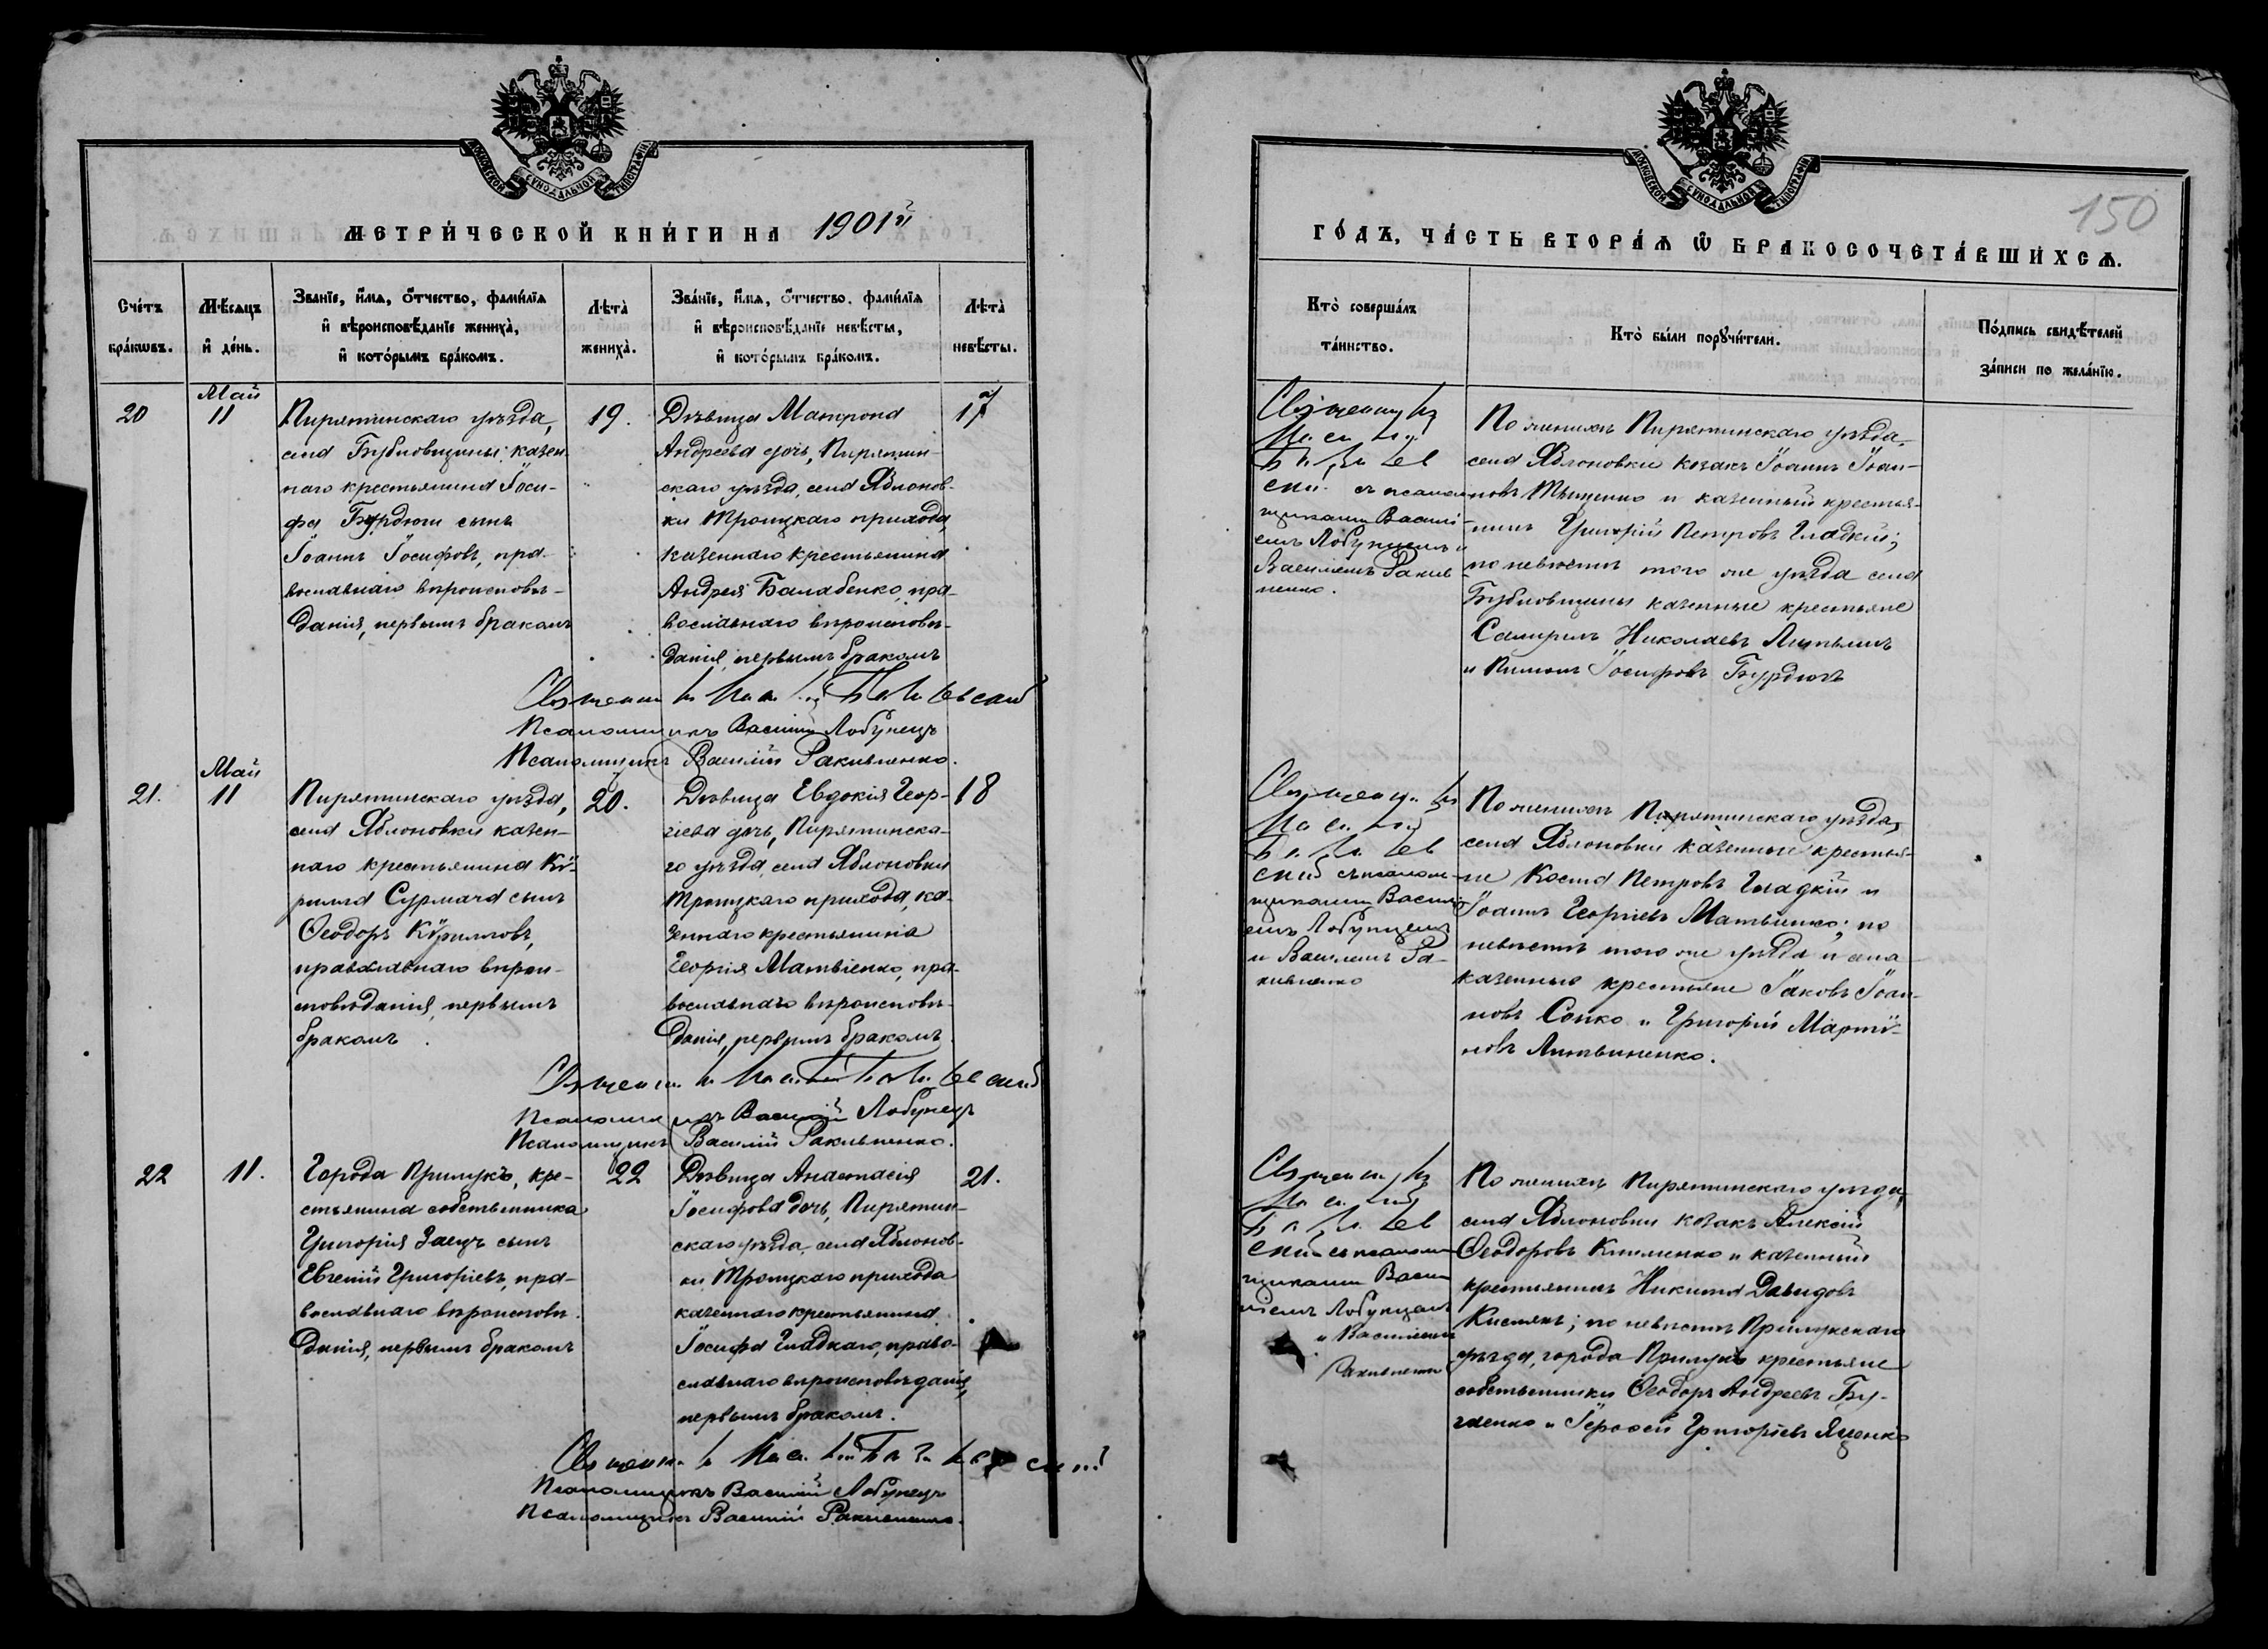 МОСКОВСКОЙ СѴНОДАЛЬНОЙ ТИПОГРАФІИ
МЕТРИ́ЧЕСКОЙ КНИ́ГИ НА 1901й
Сче́тъ бра́кѡвъ.
Мѣ́сяцъ и҆ де́нь.
Зва́нїе, и҆́мѧ, ѻ҆́тчество, фами́лїѧ и҆ вѣроисповѣ́данїе жениха̀, и҆ кото́рымъ бра́комъ.
Лѣта̀ жениха̀.
Зва́нїе, и҆́мѧ, ѻ҆́тчество, фами́лїѧ и҆ вѣроисповѣ́данїе невѣ́сты, и҆ кото́рымъ бра́комъ.
Лѣта̀ невѣ́сты.
20
Май
11
Пирятинскаго уѣзда,
села Бубновщины казен-
наго крестьянина Іоси-
фа Бурдюги сынъ
Іоаннъ Іосифовъ, пра-
вославнаго вѣроисповѣ-
данія, первымъ бракомъ
19.
Дѣвица Матрона
Андреева дочь, Пирятин-
скаго уѣзда, села Яблонов-
ки Троицкаго прихода,
казеннаго крестьянина
Андрея Балабенко, пра-
вославнаго вѣроисповѣ-
данія, первымъ бракомъ
17
Священникъ
Псаломщикъ Василій Лобунецъ
Псаломщикъ Василій Ракивненко.
21.
Май
11
Пирятинскаго уѣзда,
села Яблоновки казен-
наго крестьянина Кѵ-
рилла Сурмача сынъ
Ѳеодоръ Кѵрилловъ,
православнаго вѣрои-
сповѣданія, первымъ
бракомъ
20.
Дѣвица Евдокія Геор-
гіева дочь, Пирятинска-
го уѣзда, села Яблоновки
Троицкаго прихода, ка-
зеннаго крестьянина
Георгія Матвіенко, пра-
вославнаго вѣроисповѣ-
данія, первымъ бракомъ.
18
Священникъ
Псаломщикъ Василій Лобунецъ
Псаломщикъ Василій Ракивненко.
22
11.
Города Прилукъ, кре-
стьянина собственника
Григорія Заецъ сынъ
Евгеній Григоріевъ, пра-
вославнаго вѣроисповѣ-
данія, первымъ бракомъ
22
Дѣвица Анастасія
Іосифова дочь, Пирятин-
скаго уѣзда, села Яблонов-
ки Троицкаго прихода
казеннаго крестьянина
Іосифа Гладкаго, право-
славнаго вѣроисповѣданія,
первымъ бракомъ.
21.
Священникъ
Псаломщикъ Василій Лобунецъ
Псаломщикъ Василій Ракивненко.
МОСКОВСКОЙ СѴНОДАЛЬНОЙ ТИПОГРАФІИ
150
ГО́ДЪ, ЧА́СТЬ ВТОРА́Ѧ Ѽ БРАКОСОЧЕТА́ВШИХСѦ.
Кто̀ соверша́лъ та́инство.
Кто̀ бы́ли порꙋчи́тели.
По́дпись свидѣ́телей за́писи по жела́нїю.
Священникъ
съ псалом-
щиками Васил-
емъ Лобунцемъ и
Василіемъ Ракив-
ненко.
По женихѣ Пирятинскаго уѣзда,
села Яблоновки козакъ Іоаннъ Іоан-
новъ Тыщенко и казенный крестья-
нинъ Григорій Петровъ Гладкій;
по невѣстѣ того же уѣзда села
Бубновщины казенные крестьяне
Николаевъ
и Пименъ Іосифовъ Бурдюгъ
Священникъ
съ псалом-
щиками Васил-
емъ Лобунцемъ
и Василіемъ Ра-
кивненко
По женихѣ Пирятинскаго уѣзда,
села Яблоновки казенные крестья-
не Косма Петровъ Гладкій и
Іоаннъ Георгіевъ Матвіенко; по
невѣстѣ того же уѣзда и села
казенные крестьяне Іаковъ Іоан-
новъ Сопко и Григорій Марти-
новъ Литвиненко.
Священникъ
съ псалом-
щиками Васи-
ліемъ Лобунцемъ
и Василіемъ
Ракивненко
По женихѣ Пирятинскаго уѣзда,
села Яблоновки козакъ Алексій
Ѳеодоровъ Клименко и казенный
крестьянинъ Никита Давидовъ
Кистякъ; по невѣстѣ Прилукскаго
уѣзда, города Прилукъ крестьяне
собственники Ѳеодоръ Андреевъ
и Іероѳей Григоріевъ Яценко